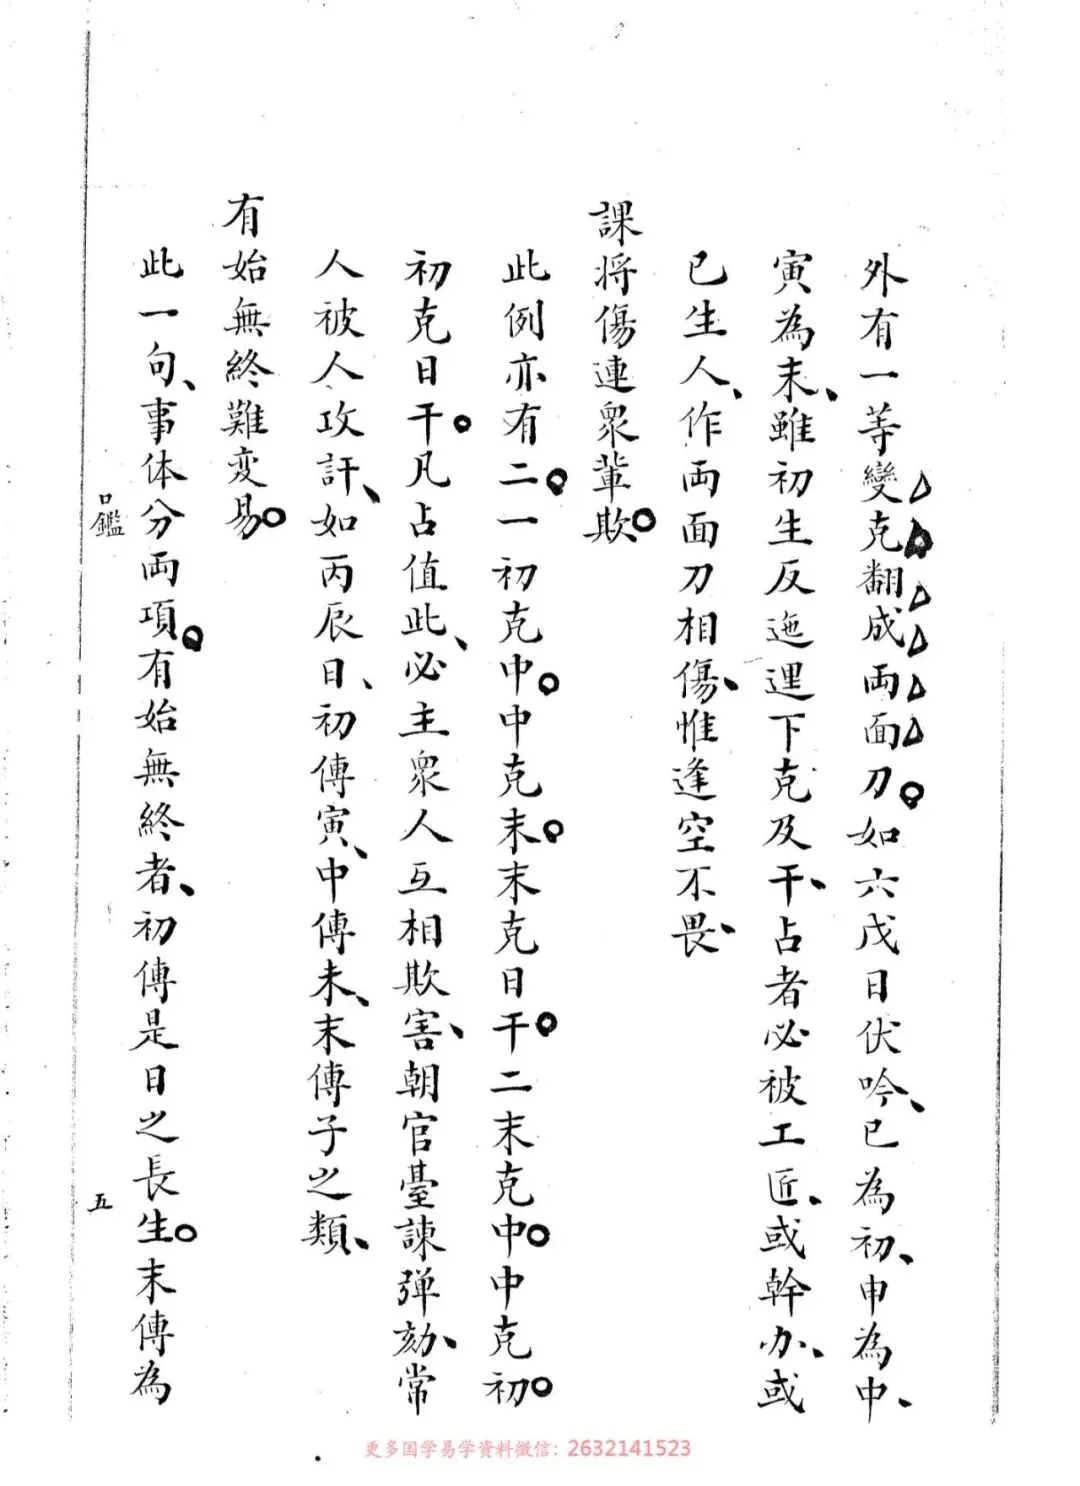 外有一等變克翻成両面刀如六戊日伏吟、巳為初、申為中、
寅為末、雖初生反迤逦下克及干、占者必被工匠、或幹办、或
已生人、作両面刀相傷、惟逢空不畏、
課將傷連衆軰欺。
此例亦有二。一初克中。中克末。末克日干。二末克中。中克初。
初克日干。凡占值此、必主衆人互相欺害、朝官臺諫弹劾、常
人被人攻訐、如丙辰日、初傳寅、中傳未、末傳子之類、
有始無終難变易。
此一句、事体分両項。有始無終者、初傳是日之長生。末傳為
口鑑
五
更多国学易学资料微信：2632141523